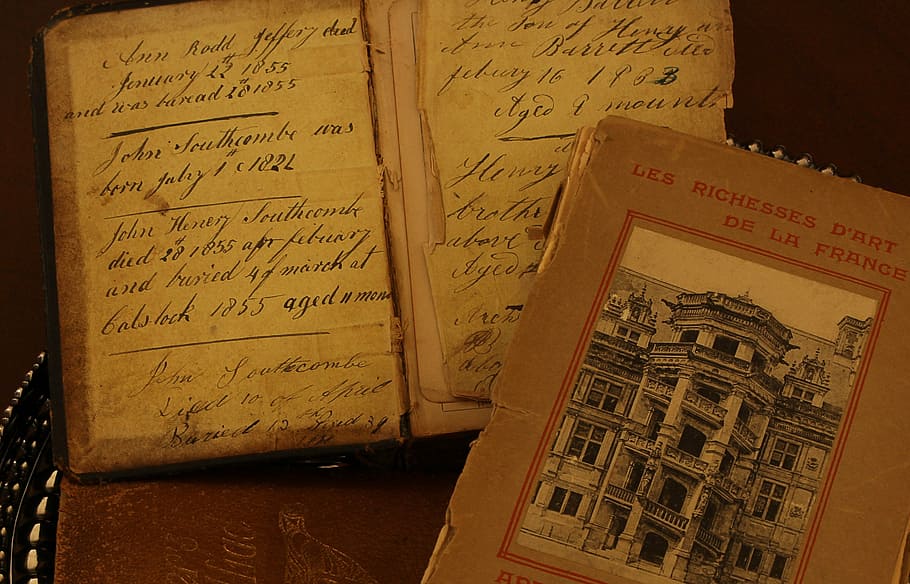 Ann Rodd Jeffery died
January 22th 1855
and was buread 28th 1855
John Southcombe was
born july 1th 1821
John Henery Southcombe
died 28th 1855 febuary
and buried 4 of march at
Calstock 1855 aged 11 mon
John Southcombe
Died 10 of April
Buried 12th
Henry Barrett
the Son of Henry an
Ann Barrett died
febury 16 1833
Aged 9 mount
Henry
brothe
above
Aged
LES RICHESSES D'ART
DE LA FRANCE